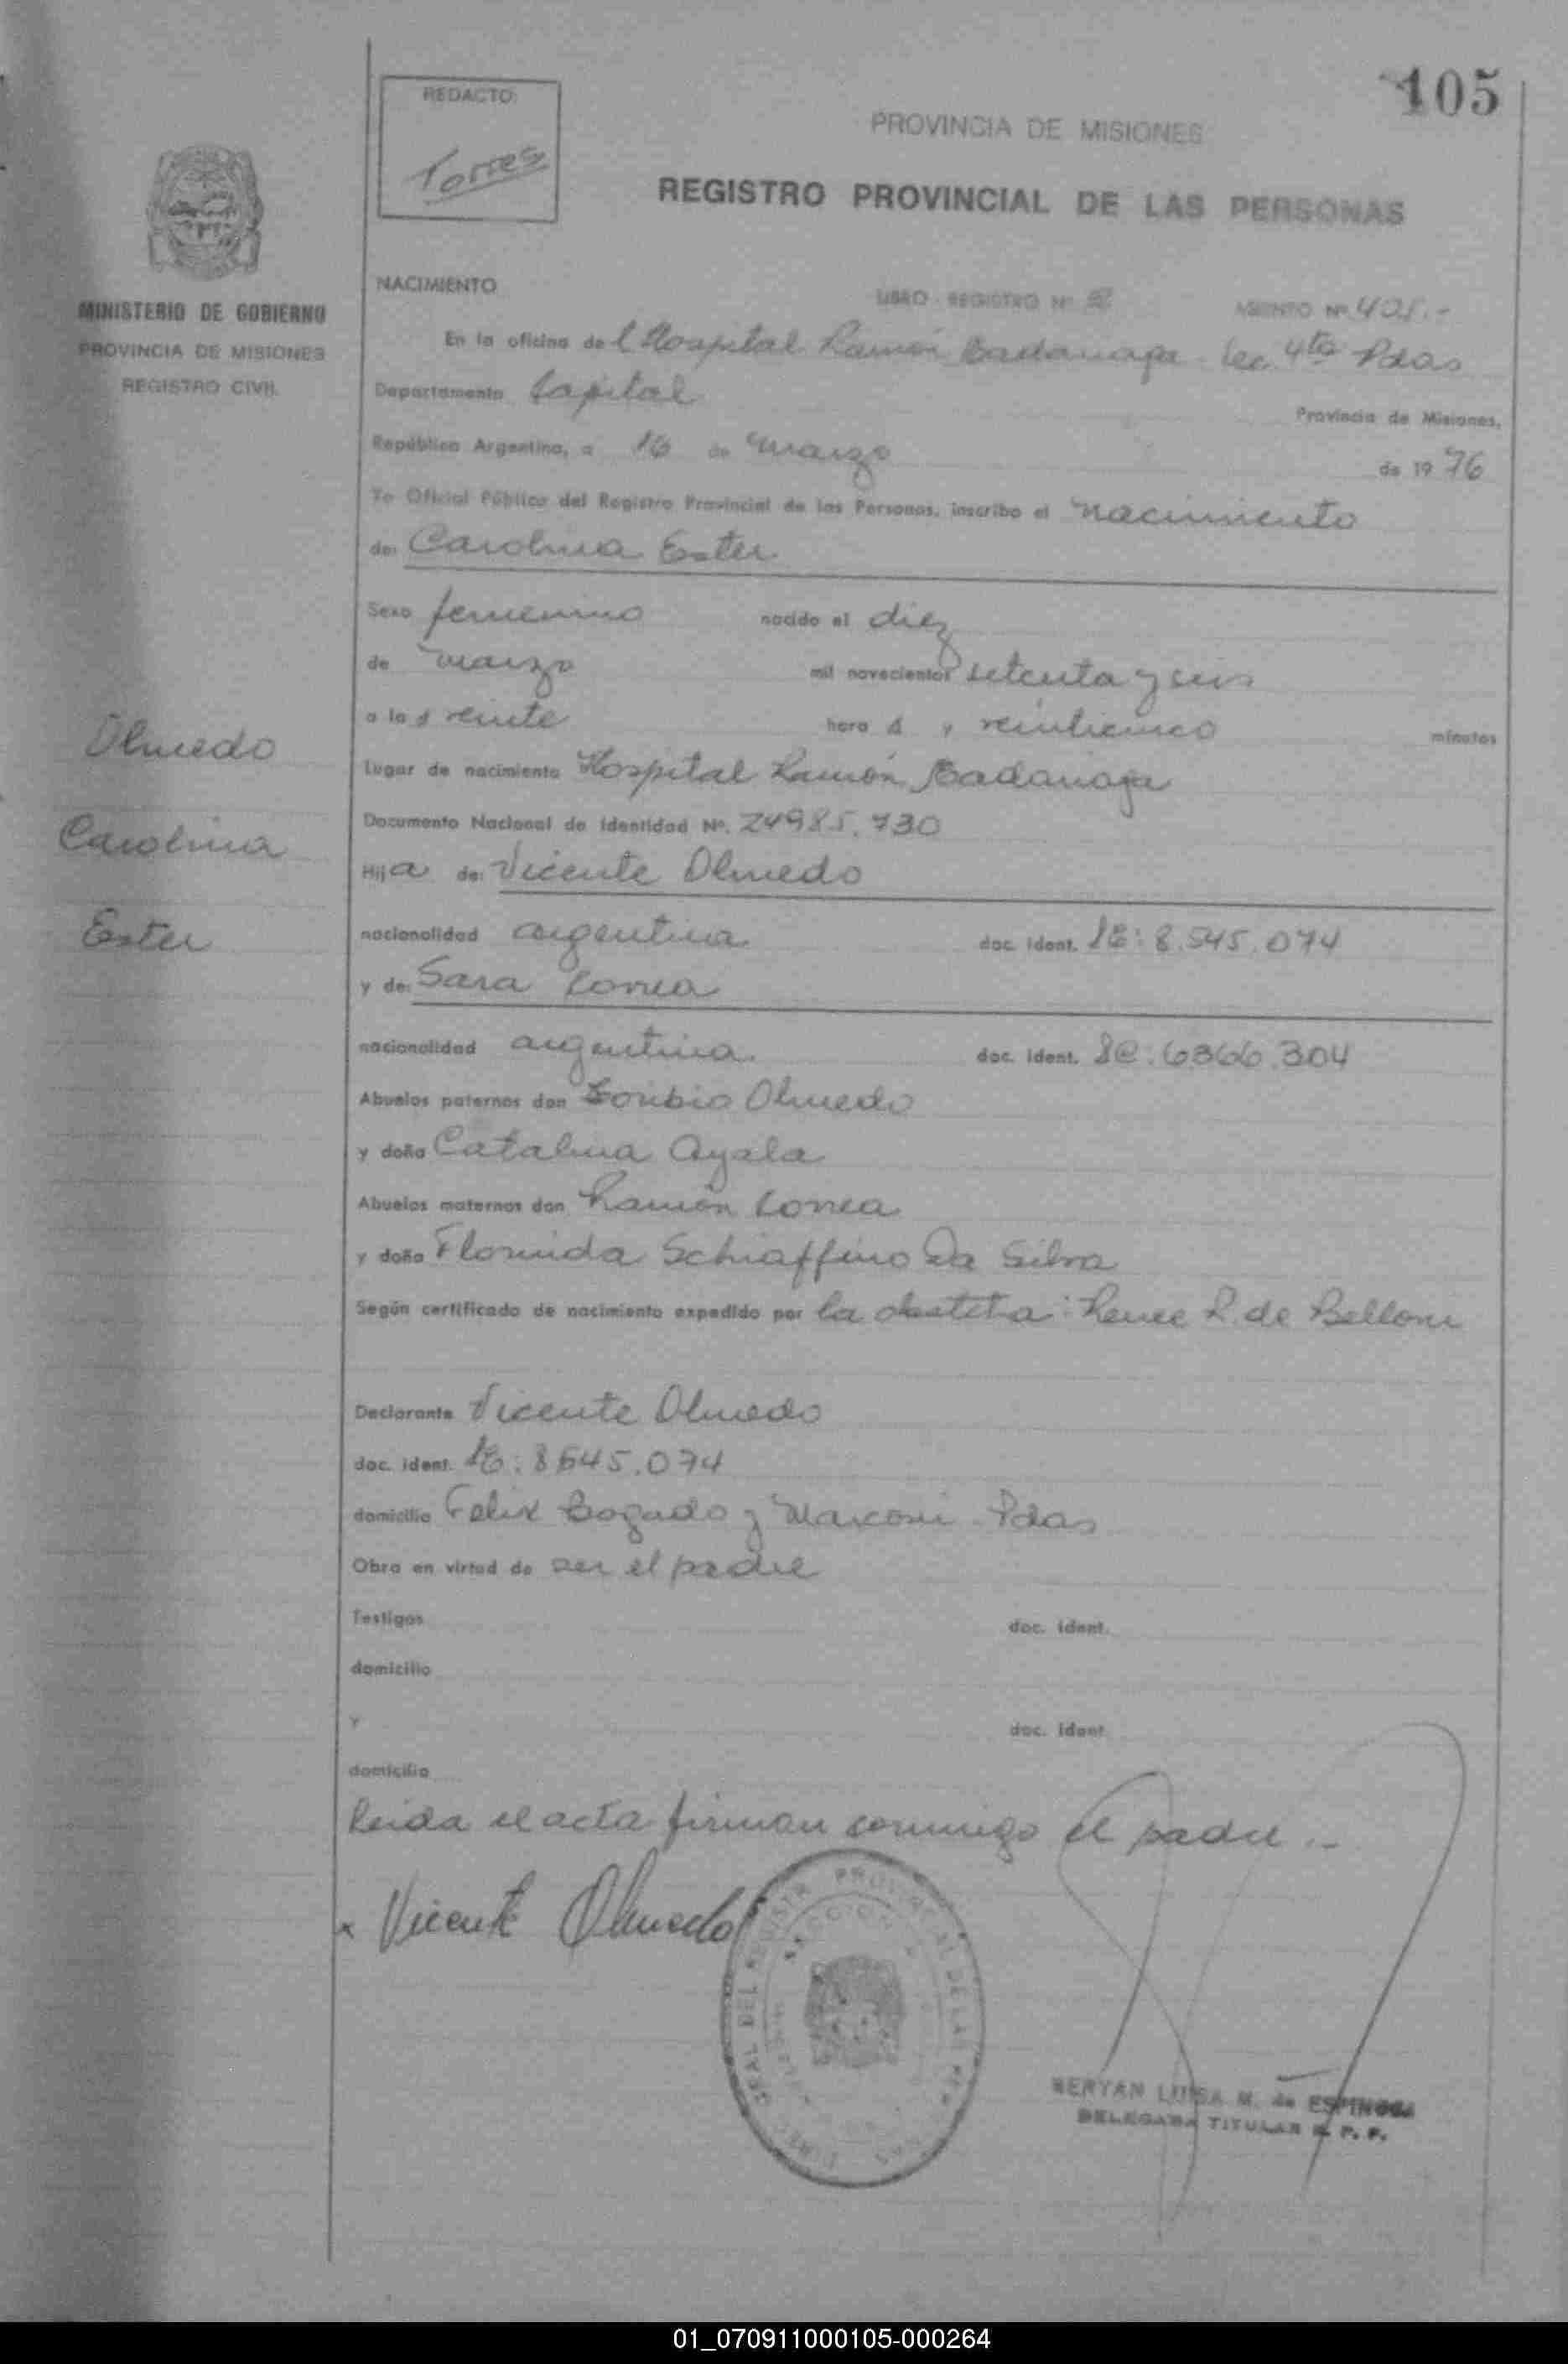 105
REDACTO:
Torres
PROVINCIA DE MISIONES
REGISTRO PROVINCIAL DE LAS PERSONAS
MINISTERIO DE GOBIERNO
PROVINCIA DE MISIONES
REGISTRO CIVIL
NACIMIENTO
LIBRO - REGISTRO Nº
ASIENTO Nº 401.-
En la oficina del Hospital Ramón Madariaga Sec 4ta Pdas
Departamento Capital
Provincia de Misiones,
República Argentina, a 16 de marzo de 1976
Yo Oficial Público del Registro Provincial de las Personas, inscribo el nacimiento
de: Carolina Ester
Sexo femenino nacido el diez
de marzo mil novecientos setenta y seis
a las veinte hora s y veinticinco minutos
Olmedo
Carolina
Ester
Lugar de nacimiento Hospital Ramón Madariaga
Documento Nacional de Identidad Nº. 24985.730
Hija de: Vicente Olmedo
nacionalidad argentina doc. ident. LE: 8.545.074
y de: Sara Correa
nacionalidad argentina doc. ident. LC: 6366.304
Abuelos paternos don Toribio Olmedo
y doña Catalina Ayala
Abuelos maternos don Ramón Correa
y doña Florinda Schiaffino Da Silva
Según certificado de nacimiento expedido por la obstetra: Renee R. de Belloni
Declarante Vicente Olmedo
doc. ident. LE: 8545.074
domicilio Felix Bogado y Marconi - Pdas
Obra en virtud de ser el padre
Testigos doc. ident.
domicilio
y doc. ident.
domicilio
leida el acta firman conmigo el padre.-
x Vicente Olmedo
NERYAN LUISA M. de ESPINOSA
DELEGADA TITULAR R. P. P.
01_070911000105-000264